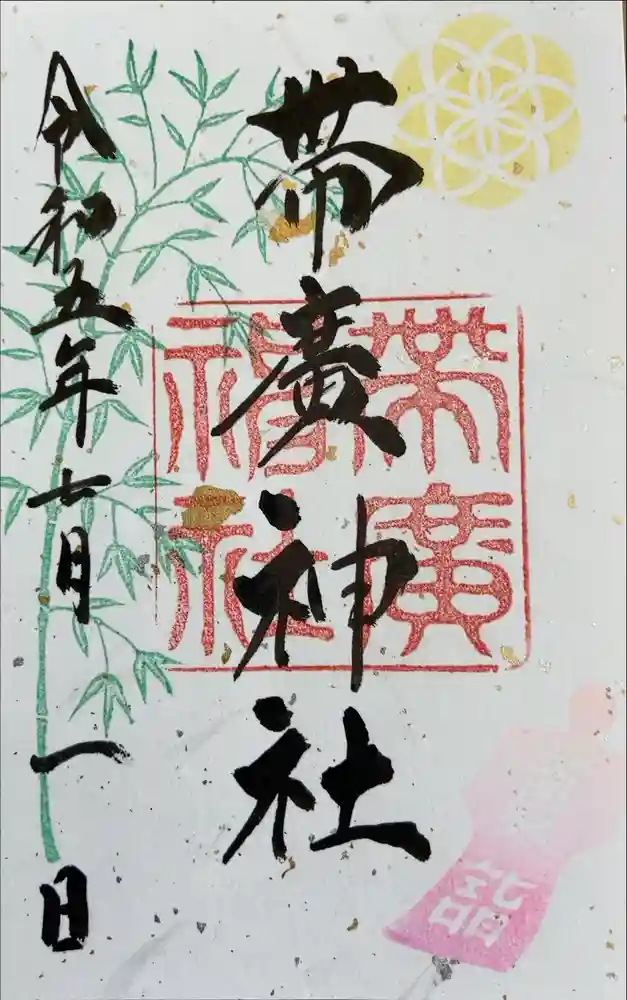 帯廣神社
帯廣
神社
令和五年七月一日
詣